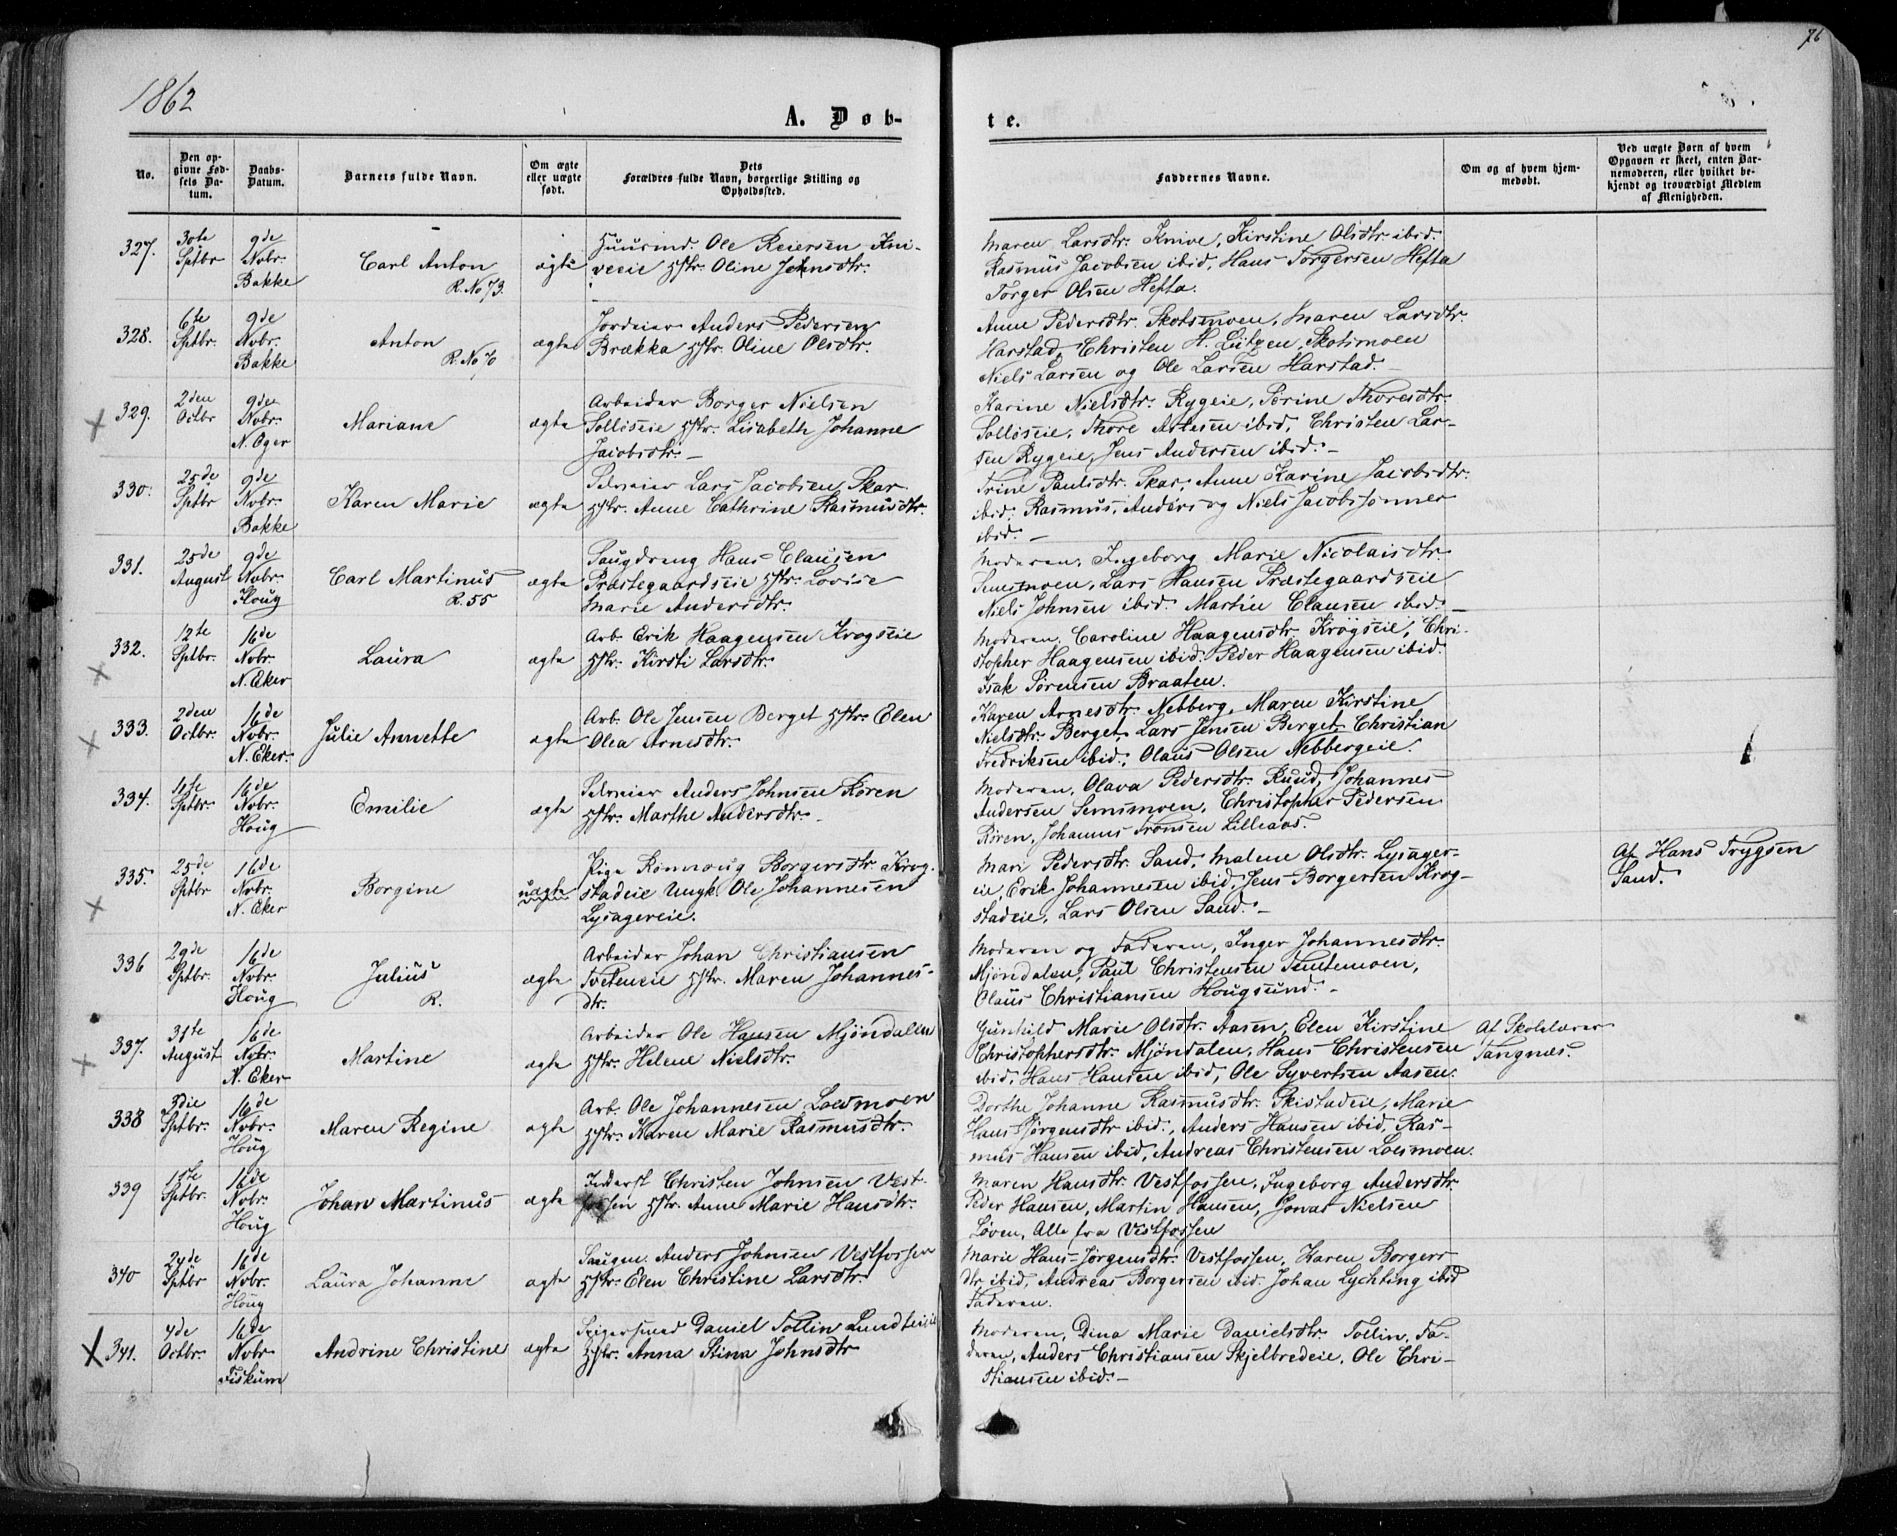 1862
76
A. Døb-
te.
No.
Den op-
givne Fød-
sels Da-
tum.
Daabs-
Datum.
Barnets fulde Navn.
Om ægte
eller uægte
født.
Dets
Forældres fulde Navn, borgerlige Stilling og
Opholdssted.
Faddernes Navne.
Om og af hvem hjem-
medøbt.
Ved uægte Børn af hvem
Opgaven er skeet, enten Bar-
nemoderen, eller hvilket be-
kjendt og troværdigt Medlem
af Menigheden.
327.
30te
Sptbr
9de
Nobr.
Bakke
Carl Anton
R. No 73.
ægte
Huusmd. Ole Reiersen Kni-
veeie Hstr. Oline Johnsdtr.
Maren Larsdtr. Knive, Kirstine Olsdtr ibid.
Rasmus Jacobsen ibid, Hans Torgersen Hefta
Torger Olsen Hefta.
328.
6te
Sptbr.
9de
Nvbr.
Bakke
Anton
R. No 70
ægte
Jordeier Anders Pedersen
Brækka Hstr. Oline Olsdtr.
Anne Pedersdtr. Skotsmoen, Maren Larsdtr.
Harstad, Christen H. Lützen, Skotsmoen
Niels Larsen og Ole Larsen Harstad. –
329.
2den
Octbr
9de
Nvbr.
N. Oger
Mariane
ægte
Arbeider Borger Nielsen
Solløseie Hstr. Lisabeth Johanne
Jacobsdtr. –
Karine Nielsdtr. Rygeie, Sørine Thoresdtr.
Solløseie, Thore Arnesen ibid, Christen Lar-
sen Rygeie, Jens Andersen ibid. –
330.
25de
Sptbr
9de
Nvbr.
Bakke
Karen Marie
ægte
Selveier Lars Jacobsen Skar
Hstr. Anne Cathrine Rasmusdtr.
Trine Paulsdtr. Skar, Anne Karine Jacobsdtr.
ibid. Rasmus, Anders og Niels Jacobssønner
ibid. –
331.
25de
August
9de
Nvbr.
Houg
Carl Martinus
R. 55
ægte
Saugdreng Hans Clausen
Præstegaardseie Hstr. Lovise
Marie Andersdtr.
Moderen, Ingeborg Marie Nicolaisdtr
Semsmoen, Lars Hansen Præstegaardseie
Niels Johnsen ibid. Martin Clausen ibid. –
332.
12te
Sptbr.
16de
Nvbr.
N. Eker
Laura
ægte
Arb. Erik Haagensen Krogseie
Hstr. Kirsti Larsdtr.
Moderen, Caroline Haagensdtr. Krogseie, Chri-
stopher Haagensen ibid. Peder Haagensen ibid.
Isak Sørensen Braaten.
333.
2den
Octbr.
16de
Nvbr.
N. Eker.
Julie Annette
ægte
Arb. Ole Jensen Berget Hstr. Elen
Olea Arnesdtr.
Karen Arnesdtr. Nebberg, Maren Kirstine
Nielsdtr. Berget, Lars Jensen Berget, Christian
Fredriksen ibid, Olaus Olsen Nebbergeie.
334.
Sptbr.
16de
Nvbr.
Houg
Emilie
ægte
Selveier Anders Johnsen Røren
Hstr. Marthe Andersdtr.
Moderen, Olava Pedersdtr. Ruud, Johannes
Andersen Semsmoen, Christopher Pedersen
Røren, Johannes Tronsen Lilleaas.
335.
25de
Sptbr
16de
Nvbr.
N. Eker
Borgine
uægte
Pige Rønnoug Borgersdtr. Krog-
stadeie Ungk. Ole Johannesen
Lysagereie.
Mari Pedersdtr. Sand, Malene Olsdtr. Lysager-
eie, Erik Johannesen ibid, Jens Borgersen Krog-
stadeie, Lars Olsen Sand. –
Af Hans Trygsen
Sand.
336
29de
Sptbr.
16de
Nvbr.
Houg
Julius
R.
ægte
Arbeider Johan Christiansen
Tveteneie Hstr. Maren Johannes-
dtr.
Moderen og Faderen, Inger Johannesdtr.
Mjøndalen, Paul Christensen Temtemoen,
Olaus Christiansen Hougsund. –
337.
31te
August
16de
Nvbr.
N. Eker
Martine
ægte
Arbeider Ole Hansen Mjøndalen
Hstr. Helene Nielsdtr.
Gunhild Marie Olsdtr. Aasen, Elen Kirstine
Christophersdtr. Mjøndalen, Hans Christensen
ibid, Hans Hansen ibid, Ole Syvertsen Aasen.
Af Skolelærer
Tangnæs.
338
3die
Sptbr.
16de
Nvbr.
Houg
Maren Regine
ægte
Arb. Ole Johannesen Loesmoen
Hstr. Karen Marie Rasmusdtr.
Dorthe Johanne Rasmusdtr. Skistadeie, Marie
Hans Jørgensdtr ibid., Anders Hansen ibid, Ras-
mus Hansen ibid, Andreas Christensen Loesmoen.
339
15te
Sptbr.
16de
Nvbr.
Houg
Johan Martinus
ægte
Christen Johnsen Vest-
fossen Hstr. Anne Marie Hansdtr.
Maren Hansdtr. Vestfossen, Ingeborg Andersdtr.
Peder Hansen, Martin Hansen, Jonas Nielsen
Løven, Alle fra Vestfossen
340
24de
Sptbr
16de
Nvbr.
Houg
Laura Johanne
ægte
Saugm. Anders Johnsen Vestfossen
Hstr. Elen Christine Larsdtr.
Marie Hans-Jørgensdtr. Vestfossen, Karen Borgers-
dtr ibid, Andreas Borgersen ibid. Johan Lychting ibid
Faderen.
341.
4de
Octbr.
16de
Nvbr
Fiskum
Andrine Christine
ægte
Daniel Tollin Lundteigeie
Hstr. Anna Stina Johnsdtr
Moderen, Dina Marie Danielsdtr. Tollin, Fa-
deren, Anders Christiansen Skjelbredeie, Ole Chri-
stiansen ibid. –